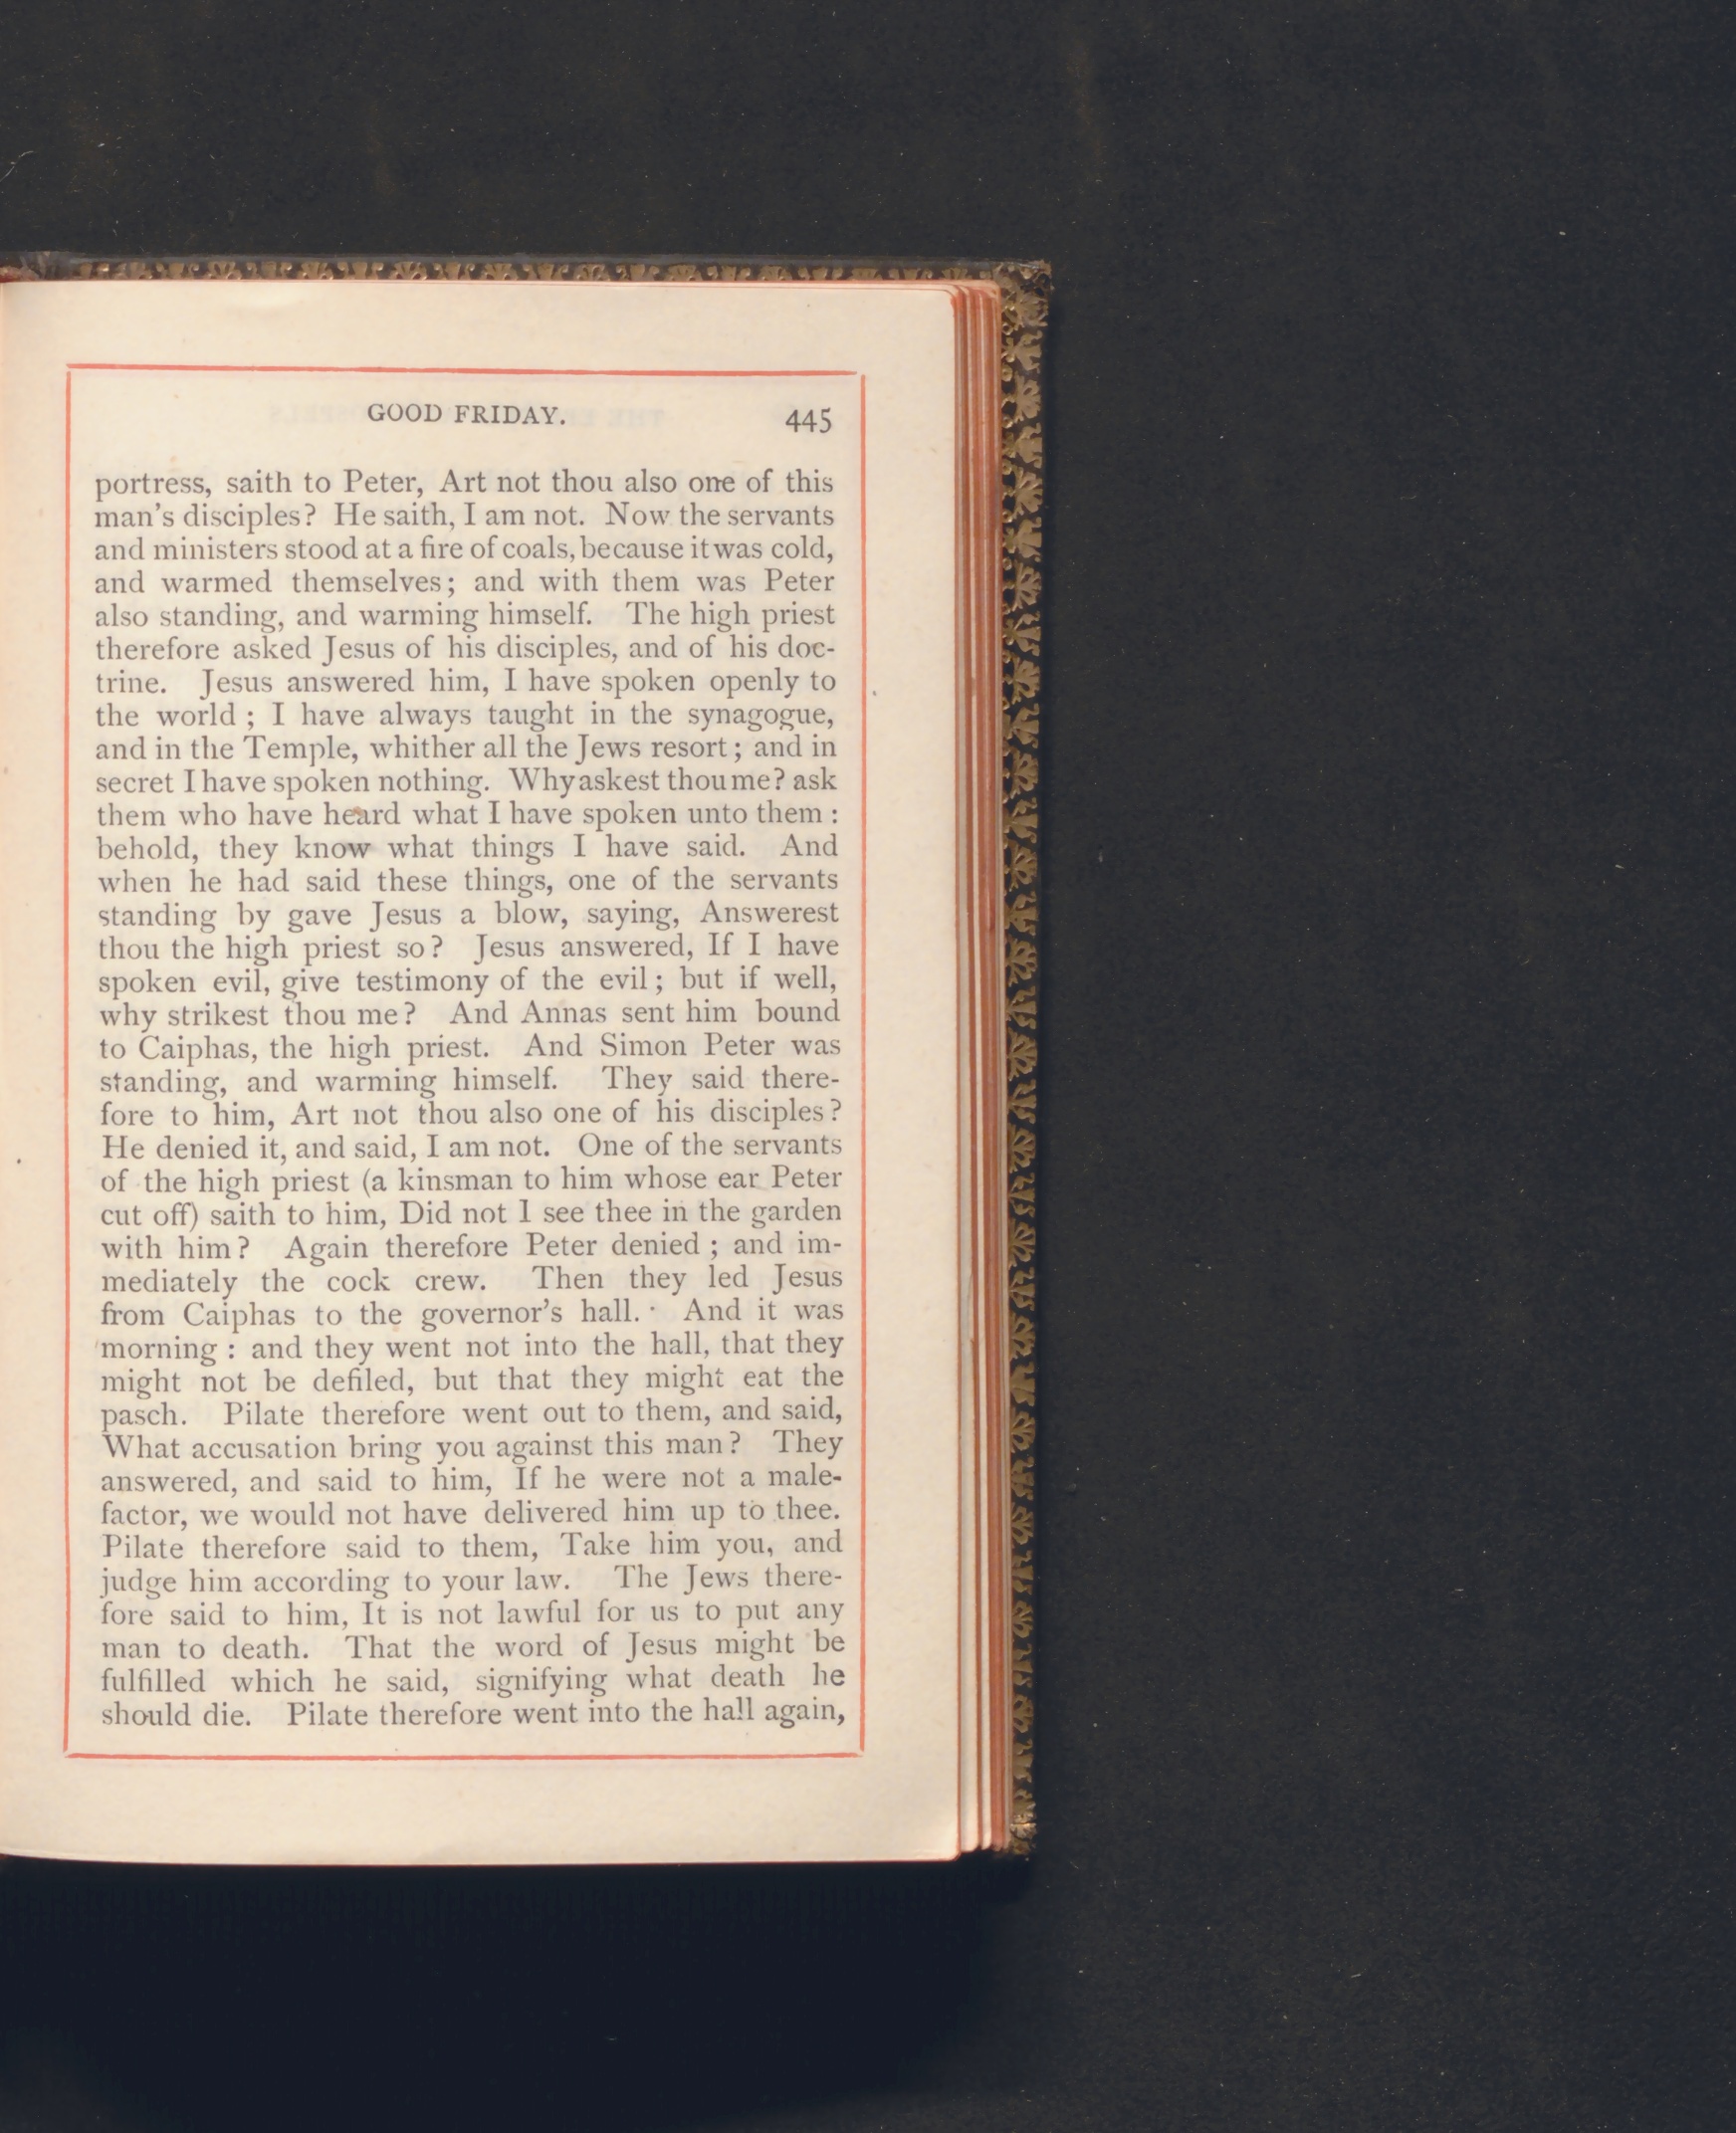 GOOD FRIDAY. 445
portress, saith to Peter, Art not thou also one of this
man's disciples? He saith, I am not. Now the servants
and ministers stood at a fire of coals, because it was cold,
and warmed themselves; and with them was Peter
also standing, and warming himself. The high priest
therefore asked Jesus of his disciples, and of his doc-
trine. Jesus answered him, I have spoken openly to
the world; I have always taught in the synagogue,
and in the Temple, whither all the Jews resort; and in
secret I have spoken nothing. Why askest thou me? ask
them who have heard what I have spoken unto them:
behold, they know what things I have said. And
when he had said these things, one of the servants
standing by gave Jesus a blow, saying, Answerest
thou the high priest so? Jesus answered, If I have
spoken evil, give testimony of the evil; but if well,
why strikest thou me? And Annas sent him bound
to Caiphas, the high priest. And Simon Peter was
standing, and warming himself. They said there-
fore to him, Art not thou also one of his disciples?
He denied it, and said, I am not. One of the servants
of the high priest (a kinsman to him whose ear Peter
cut off) saith to him, Did not I see thee in the garden
with him? Again therefore Peter denied; and im-
mediately the cock crew. Then they led Jesus
from Caiphas to the governor's hall. And it was
morning: and they went not into the hall, that they
might not be defiled, but that they might eat the
pasch. Pilate therefore went out to them, and said,
What accusation bring you against this man? They
answered, and said to him, If he were not a male-
factor, we would not have delivered him up to thee.
Pilate therefore said to them, Take him you, and
judge him according to your law. The Jews there-
fore said to him, It is not lawful for us to put any
man to death. That the word of Jesus might be
fulfilled which he said, signifying what death he
should die. Pilate therefore went into the hall again,